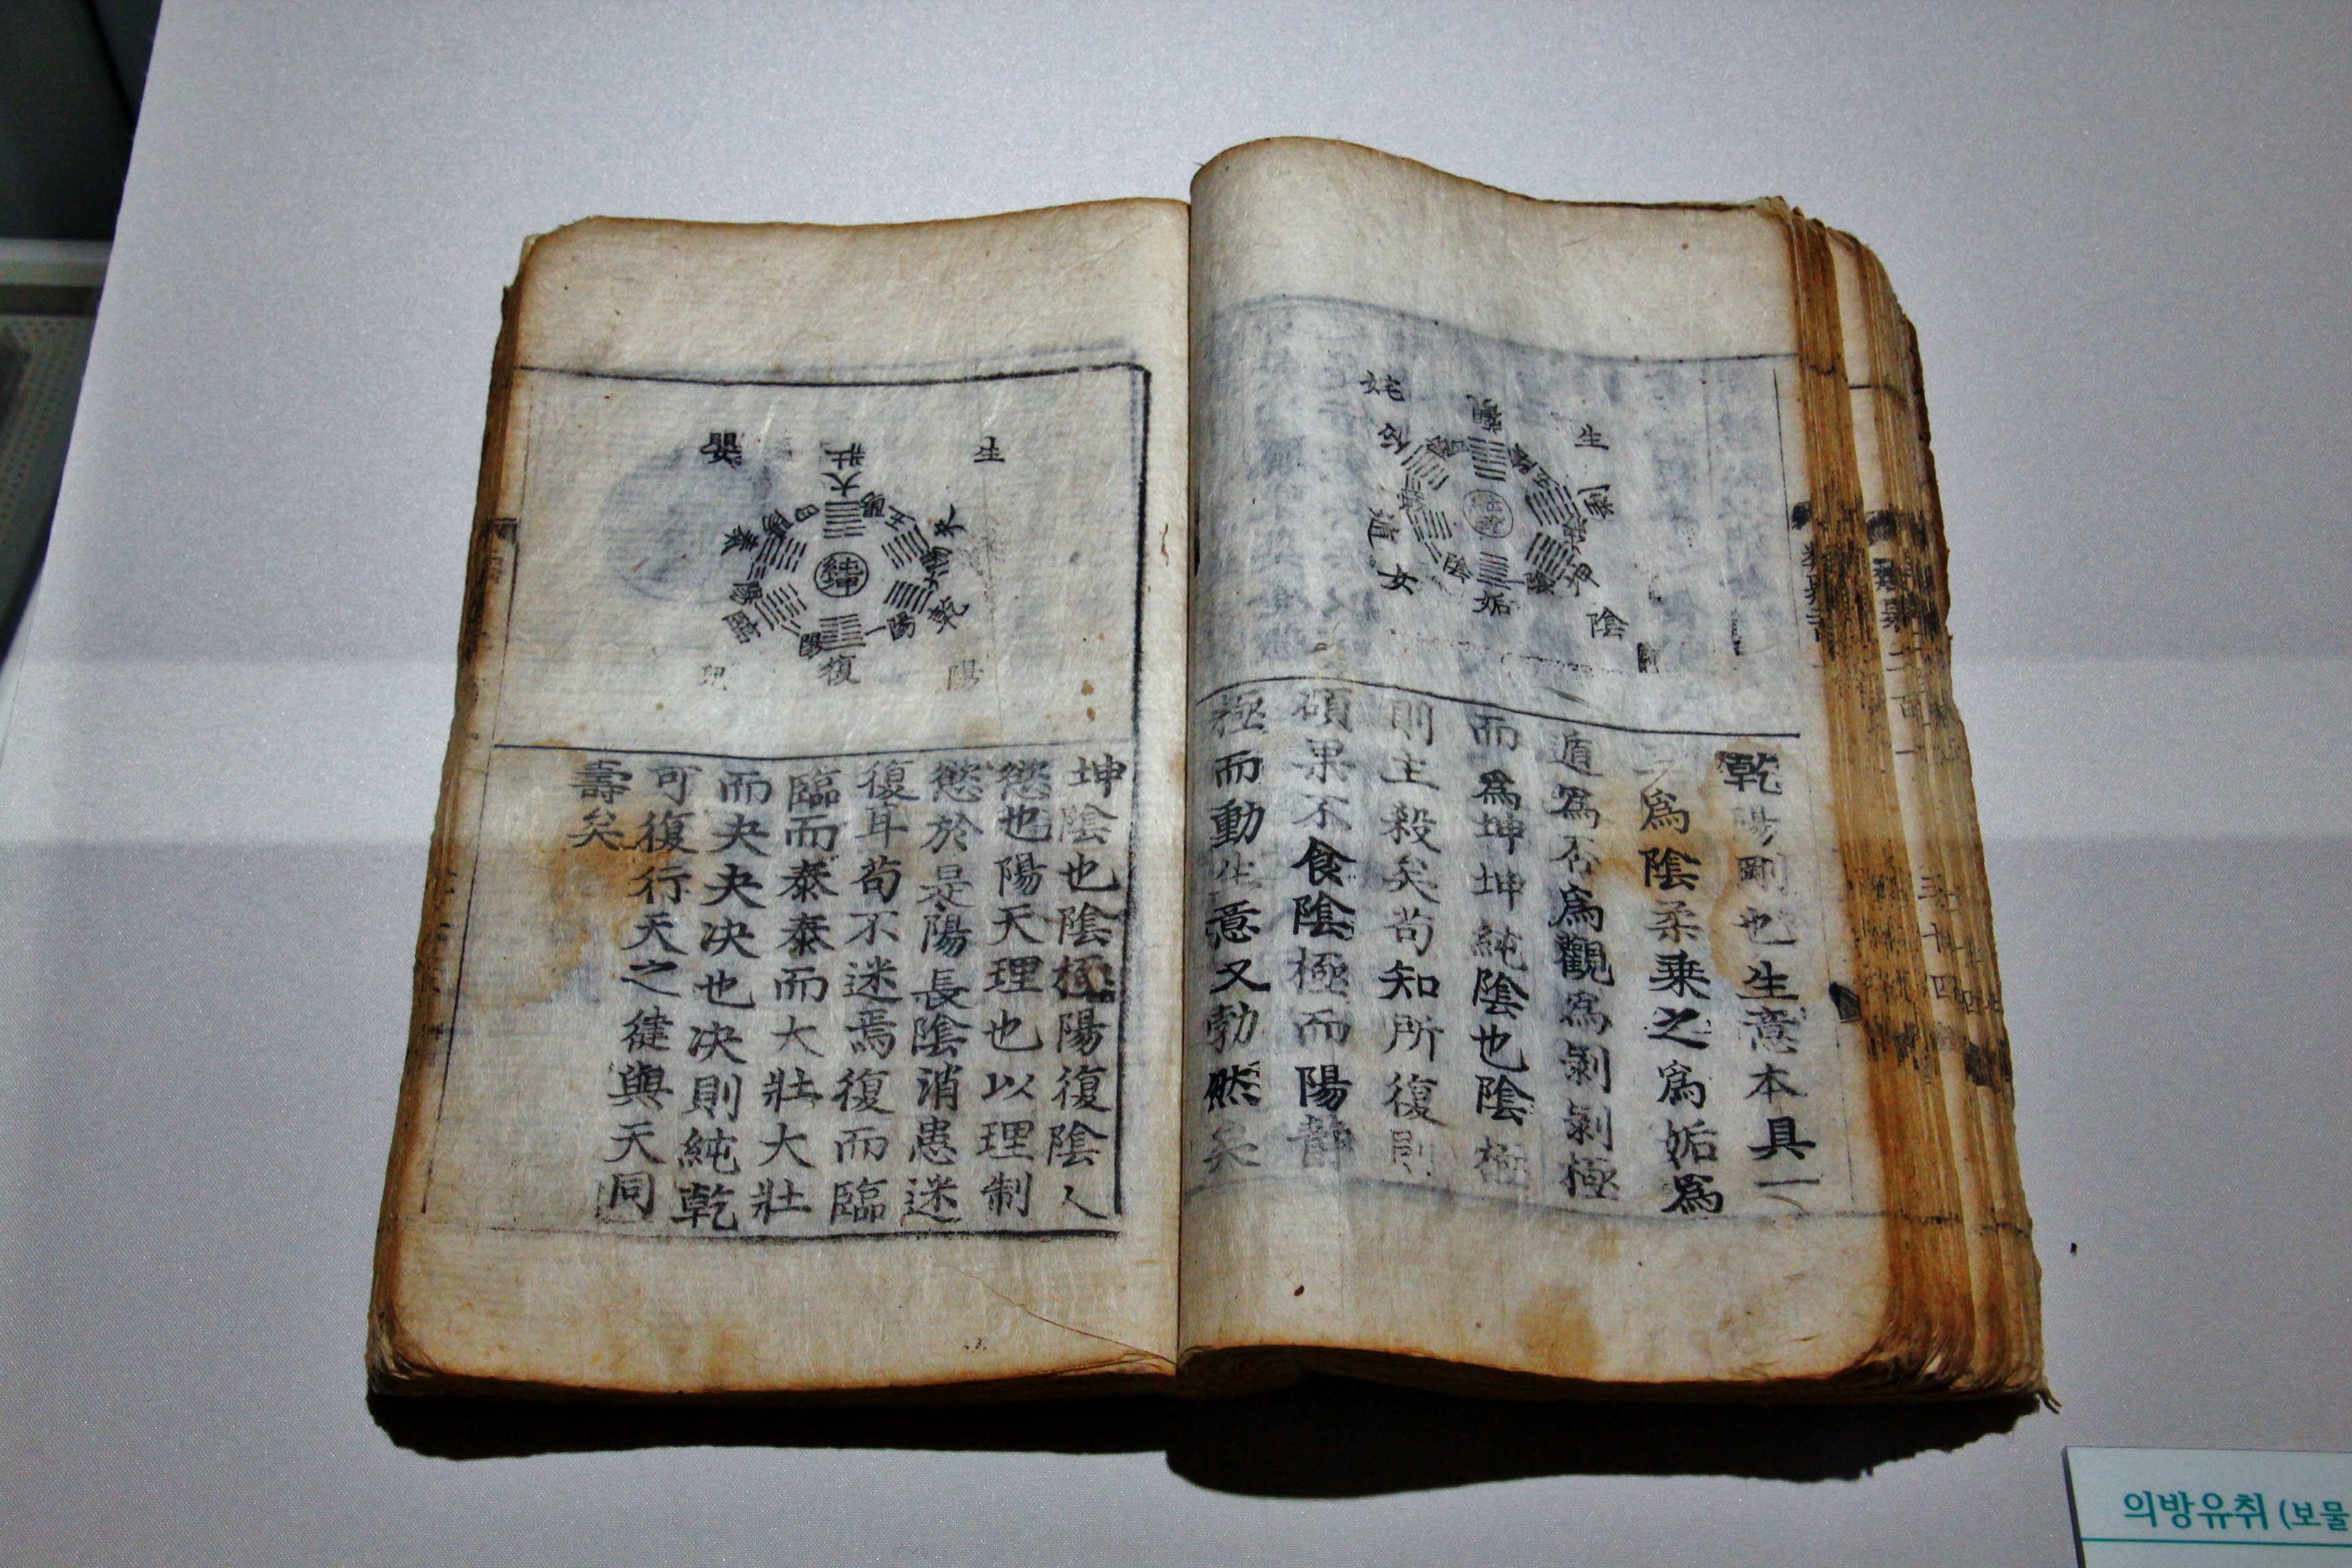 乾陽剛也生意本具一
爲陰柔乗之爲姤爲
遁爲否爲觀爲剝剝極
而爲坤坤純陰也陰極
則主殺矣苟知所復則
碩果不食陰極而陽靜
極而動生意又勃然矣
生
姤
坤
陰
女
坤陰也陰極陽復陰人
慾也陽天理也以理制
慾於是陽長陰消患迷
復耳苟不迷焉復而臨
臨而泰泰而大壯大壯
而夬夬决也决則純乾
可復行天之徤與天同
壽矣
生
大壯
夬
乾
陽
復
純坤
泰
一陽
의방유취 (보물